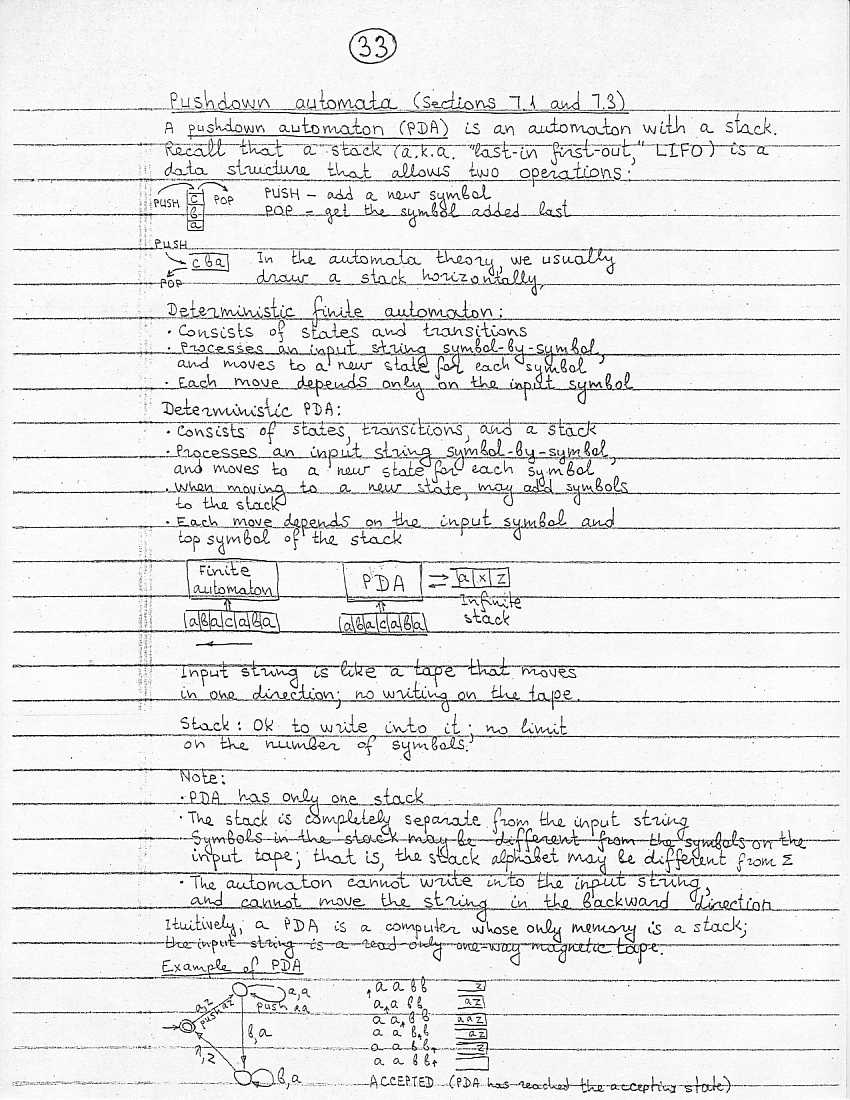 33
Pushdown automata (Sections 7.1 and 7.3)
A pushdown automaton (PDA) is an automaton with a stack.
Recall that a stack (a.k.a. "last-in first-out," LIFO) is a
data structure that allows two operations:
PUSH c POP PUSH – add a new symbol
b POP – get the symbol added last
a
PUSH
c b a In the automata theory, we usually
POP draw a stack horizontally.
Deterministic finite automaton:
· Consists of states and transitions
· Processes an input string symbol-by-symbol,
and moves to a new state for each symbol
· Each move depends only on the input symbol
Deterministic PDA:
· Consists of states, transitions, and a stack
· Processes an input string symbol-by-symbol,
and moves to a new state for each symbol
· When moving to a new state, may add symbols
to the stack
· Each move depends on the input symbol and
top symbol of the stack
Finite automaton
a b a c a b a
PDA a x z
Infinite stack
a b a c a b a
Input string is like a tape that moves
in one direction; no writing on the tape.
Stack: OK to write into it; no limit
on the number of symbols.
Note:
· PDA has only one stack
· The stack is completely separate from the input string
Symbols in the stack may be different from the symbols on the
input tape; that is, the stack alphabet may be different from Σ
· The automaton cannot write into the input string,
and cannot move the string in the backward direction
Ituitively, a PDA is a computer whose only memory is a stack;
the input string is a read-only one-way magnetic tape.
Example of PDA
a,z push az
a,a push aa
b,a
λ,z
b,a
a a b b z
a a b b a z
a a b b a a z
a a b b a z
a a b b z
a a b b
ACCEPTED (PDA has reached the accepting state)